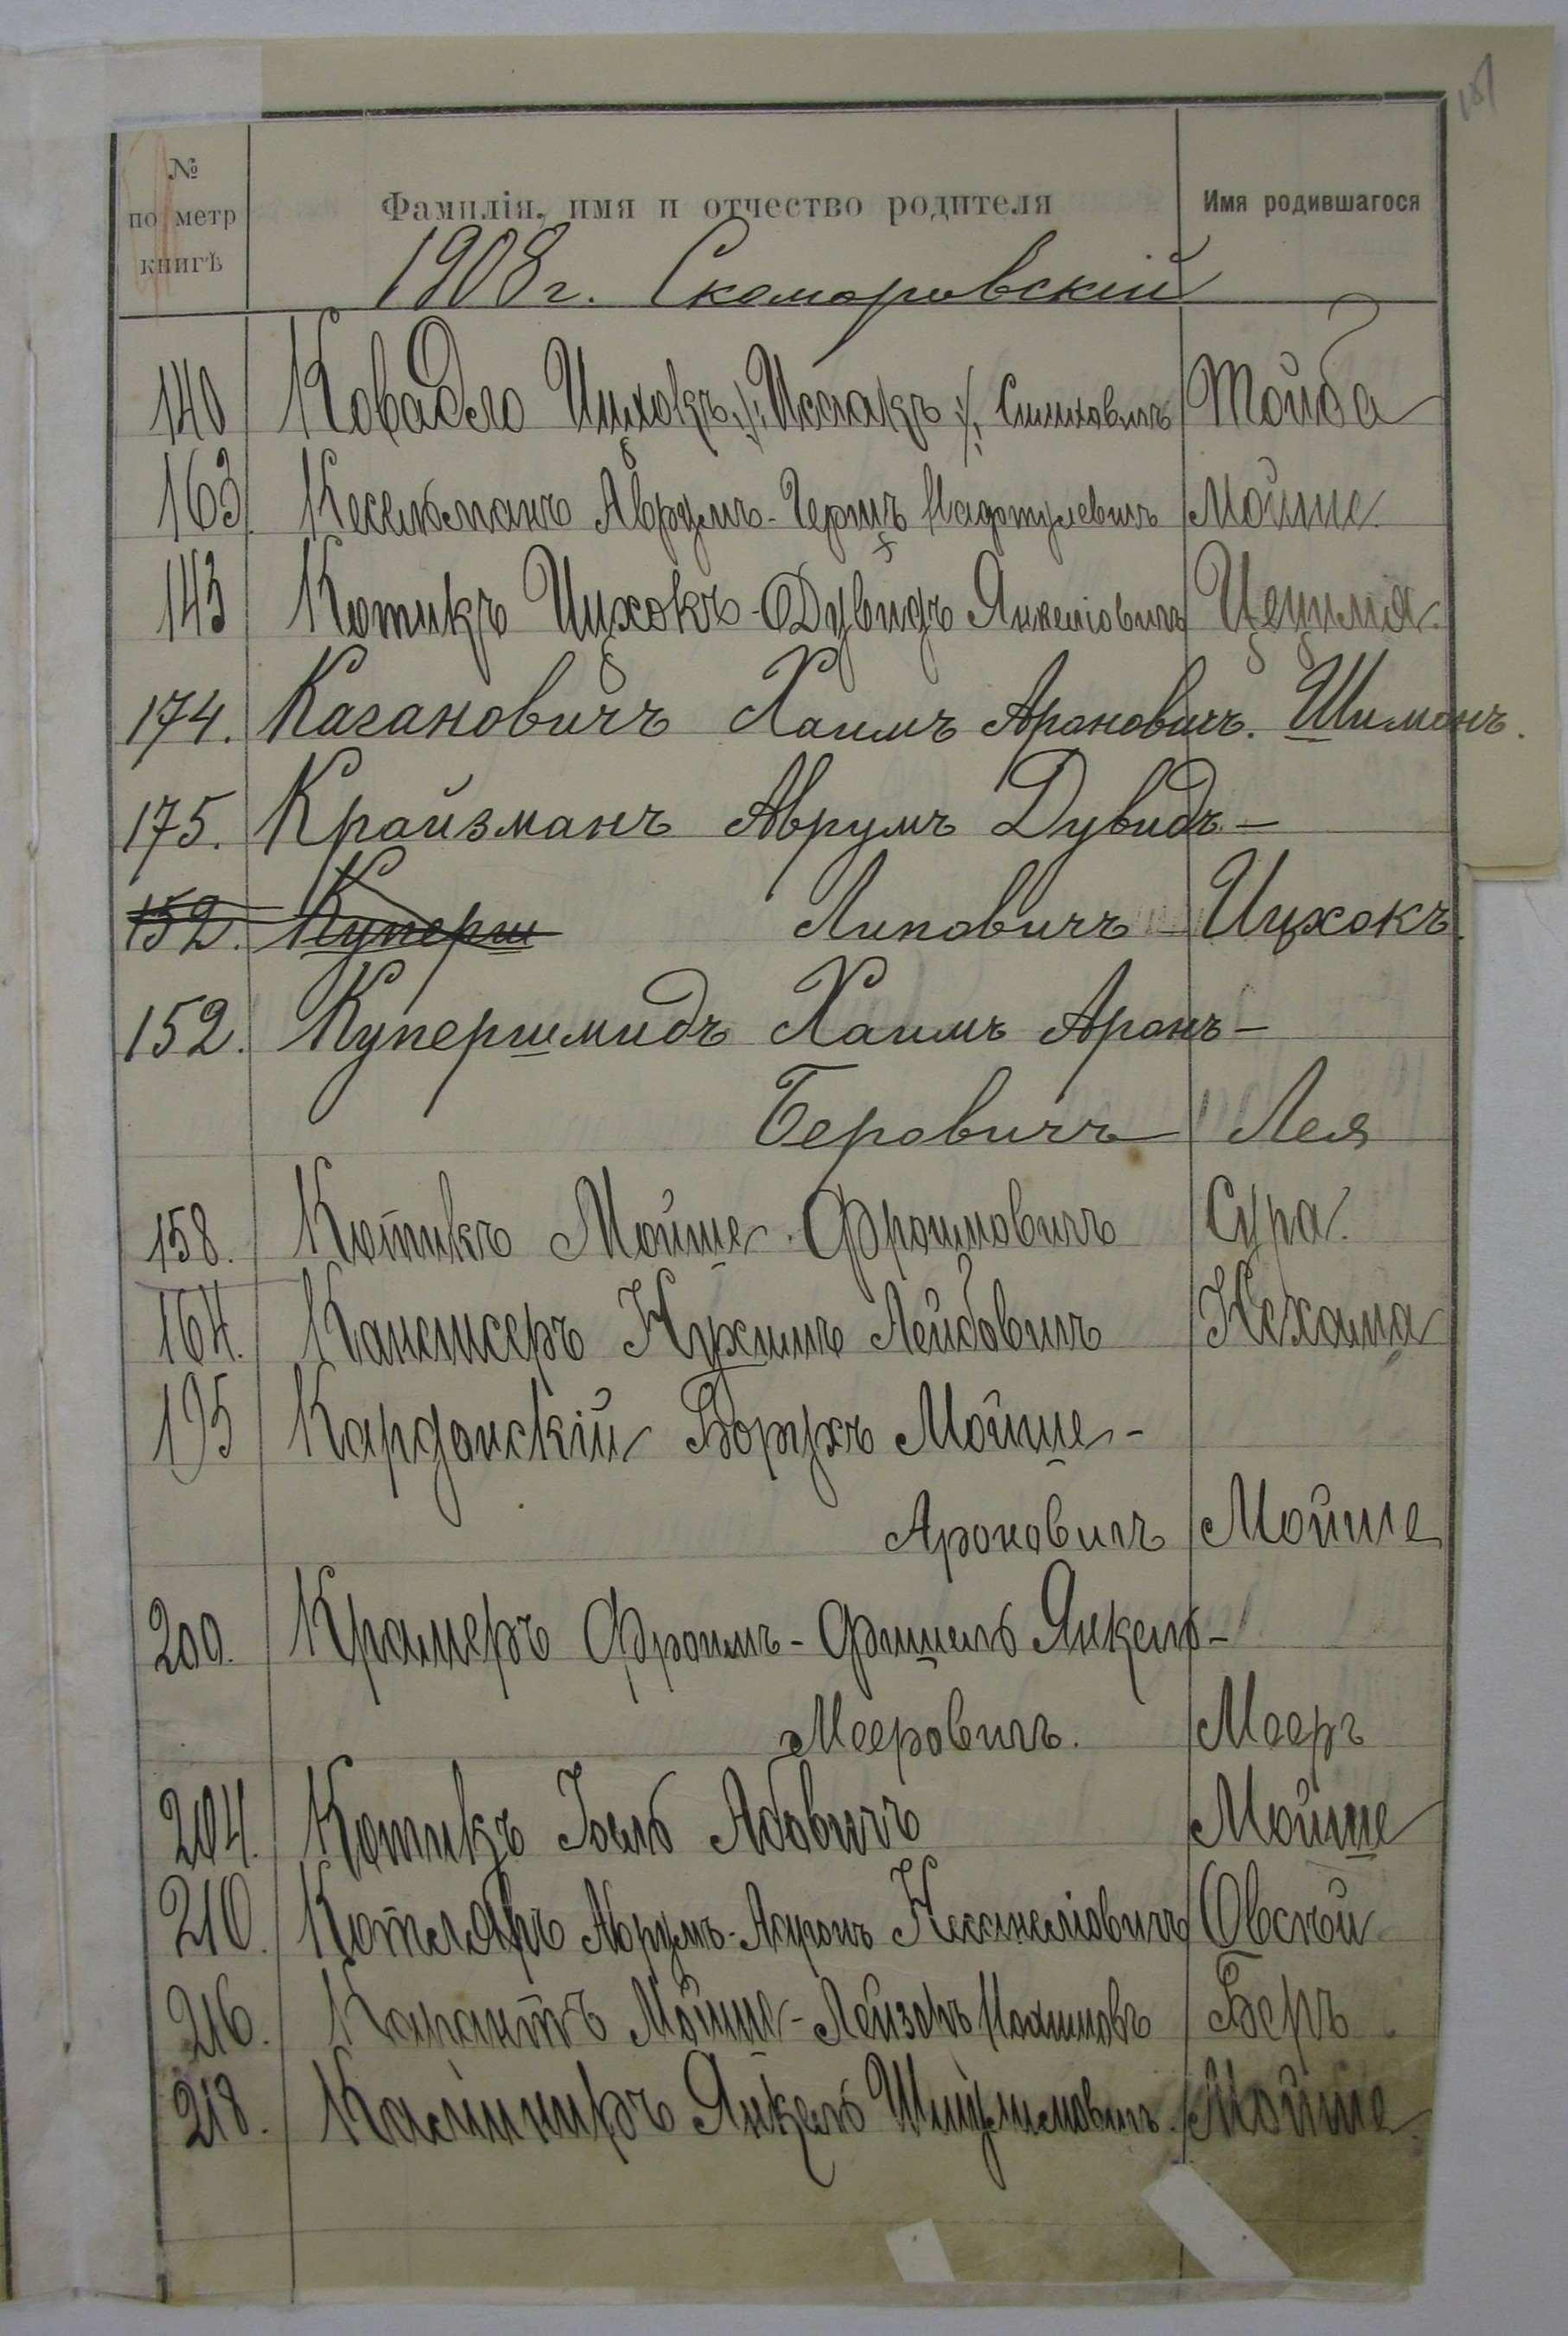 187
№ по метр книгѣ Фамилія, имя и отчество родителя Имя родившагося
1908 г. Скоморовскій
140 Ковадло Ицхокъ /:Исаакъ:/ Тойба
163. Кесельманъ Аврумъ-Гершъ Нафтулевичъ Мойше
143 Котикъ Ицхокъ-Дувидъ Янкеліовичъ Цецилія.
174. Кагановичъ Хаимъ Ароновичъ. Шимонъ.
175. Крайзманъ Аврумъ Дувидъ-
152. Куперш Липовичъ Ицхокъ.
152. Купершмидъ Хаимъ Аронъ-
Беровичъ Лея
158. Котикъ Мойше Фроимовичъ Сура.
164. Нухимъ Лейбовичъ Нехама
195 Кардонскій Борухъ Мойше-
Ароновичъ Мойше
200. Крамеръ Фроимъ-Фишель Янкель-
Мееровичъ. Мееръ
204. Котикъ Іоель Абовичъ Мойше
210. Котляръ Аврумъ-Ааронъ Овсѣй
216. Карантъ Мойше-Лейзоръ Беръ.
218. Янкель Мойше.